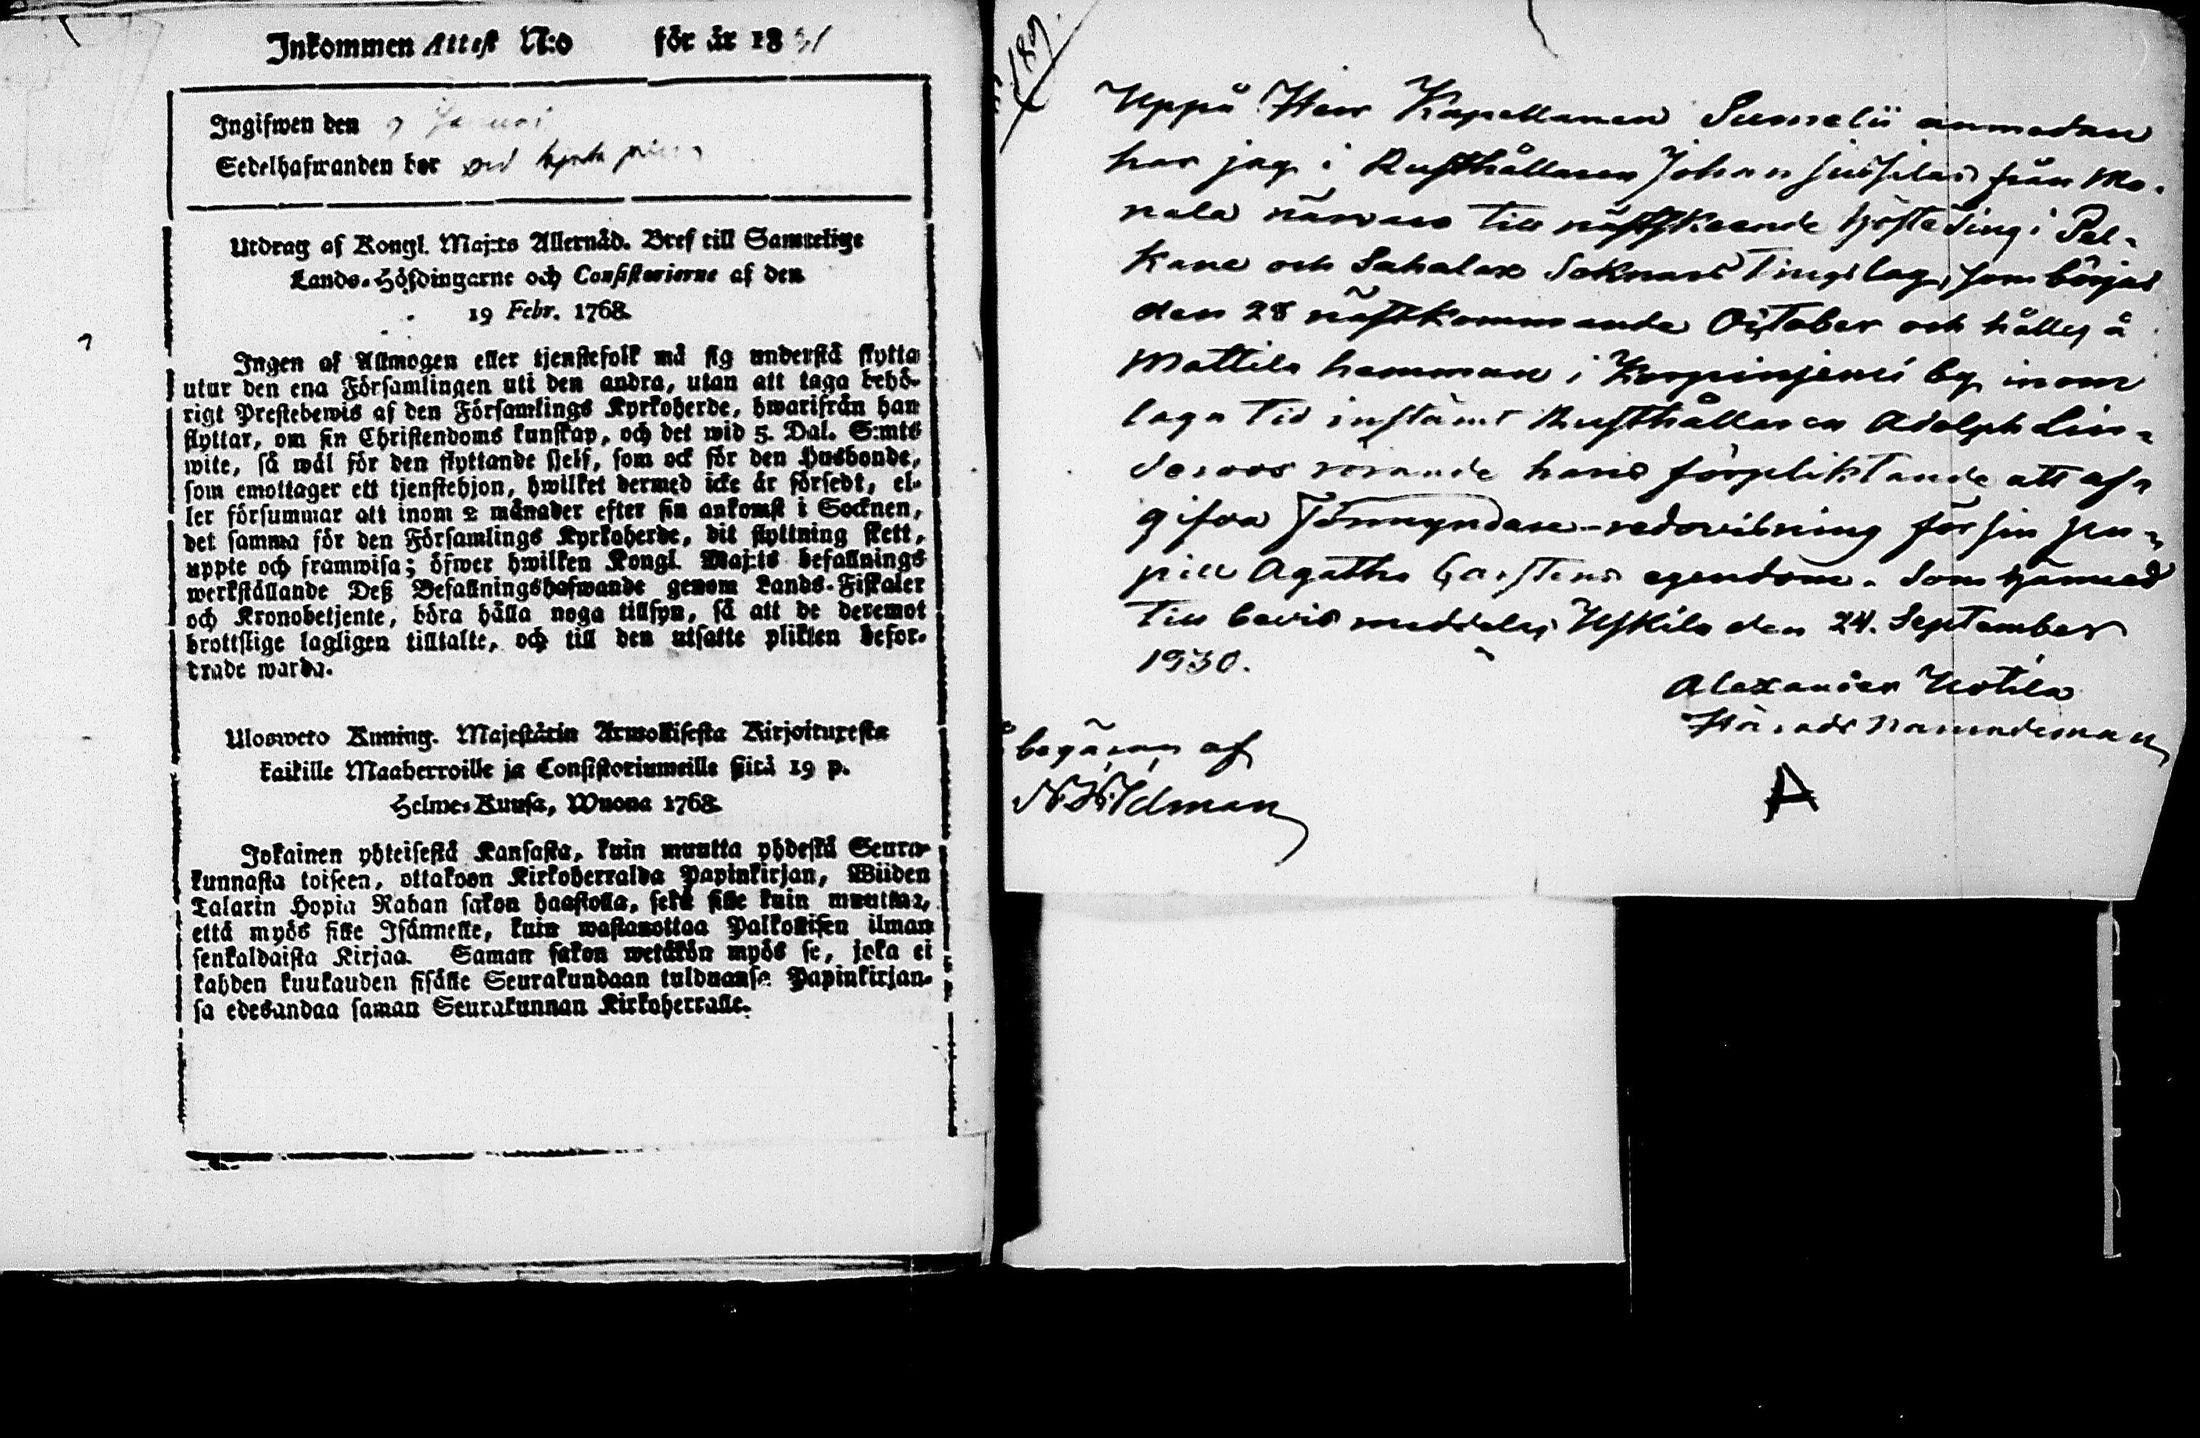 Inkommen Attest N:o för år 1831
Ingifwen den 9 Januari
Sedelhafwanden bor wid
Utdrag af Kongl. Maj:ts Allernåd. Bref till Samtelige
Lands-Höfdingarne och Consistorierne af den
19 Febr. 1768.
Ingen af Allmogen eller tjenstefolk må sig understå flytta
utur den ena Församlingen uti den andra, utan att taga behö-
rigt Prestebewis af den Församlings Kyrkoherde, hwarifrån han
flyttar, om sin Christendoms kunskap, och det wid 5. Dal. S:mts
wite, så wäl för den flyttande sjelf, som ock för den Husbonde,
som emottager ett tjenstehjon, hwilket dermed icke är försedt, el-
ler försummar att inom 2 månader efter sin ankomst i Socknen,
det samma för den Församlings Kyrkoherde, dit flyttning skett,
uppte och framwisa; öfwer hwilken Kongl. Maj:ts befallnings
werkställande Deß Befallningshafwande genom Lands-Fiskaler
och Kronobetjente, böra hålla noga tillsyn, så att de deremot
brottslige lagligen tilltalte, och till den utsatte plikten befor-
drade warda.
Ulosweto Kuning. Majestätin Armollisesta Kirjoituxesta
kaikille Maaherroille ja Consistoriumeille siitä 19 p.
Helme-Kuusa, Wuona 1768.
Jokainen yhteisestä Kansasta, kuin muutta yhdestä Seura-
kunnasta toiseen, ottakoon Kirkoherralda Papinkirjan, Wiiden
Talarin Hopia Rahan sakon haastolla, sekä sille kuin muuttaa,
että myös sille Isännelle, kuin wastanottaa Palkollisen ilman
senkaldaista Kirjaa. Saman sakon wetäkön myös se, joka ei
kahden kuukauden sisälle Seurakundaan tulduansa Papinkirjan-
sa edesandaa saman Seurakunnan Kirkoherralle.
189.
Uppå Herr Kapellanen Sumelii anmodan
har jag i Rusthållaren Johan Jussilas från Mo-
nala närvaro till nästskeende höste ting i Pel-
kane och Sahalax Soknars Tingslag, som börjas
den 28 nästkommande October och hålles å
Mattila hemman i Korpinjemi by inom
laga tid instämt Rusthållaren Adolph Lin-
deroos rörande hans förpliktande att af-
gifva Förmyndare-redovisning för sin pu-
pill Agatha Carstens egendom. Som härmed
till bevis meddelas, Uskila den 24. September
1930.
Alexander Uotila
Härads Nämndeman
begäran af
N. Idman
A